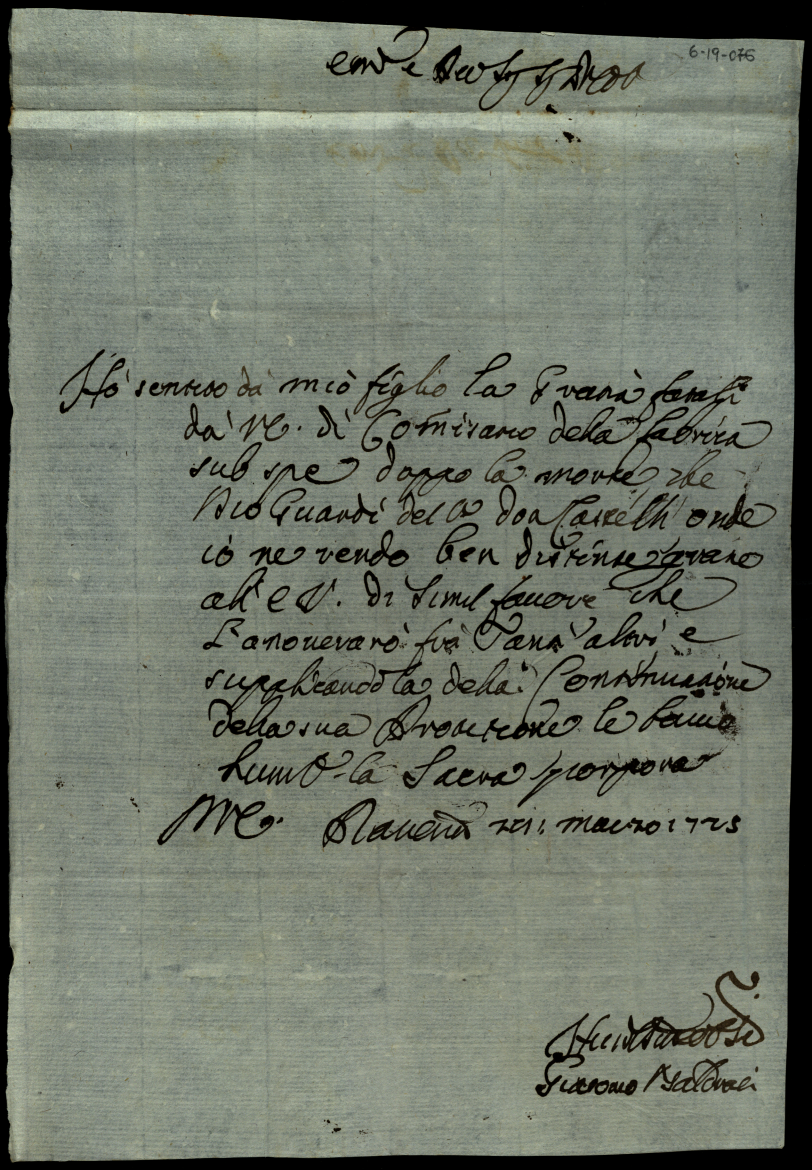 6-19-076
Em.º e
Hò sentito dà miò figlio la Grazia fatagli
dà V.E. di Comisario della fabrica
sub spe doppo la morte che
Dio Guardi del don Castelli onde
iò ne rendo ben distinte grazie
all' E.V. di simil favore che
L'anoverarò frà tanti altri e
suplicandola della Continuazione
della sua Protetione le bacio
hum.te la Sacra porpora
D.V.E. Ravena marzo 1725
Giacomo